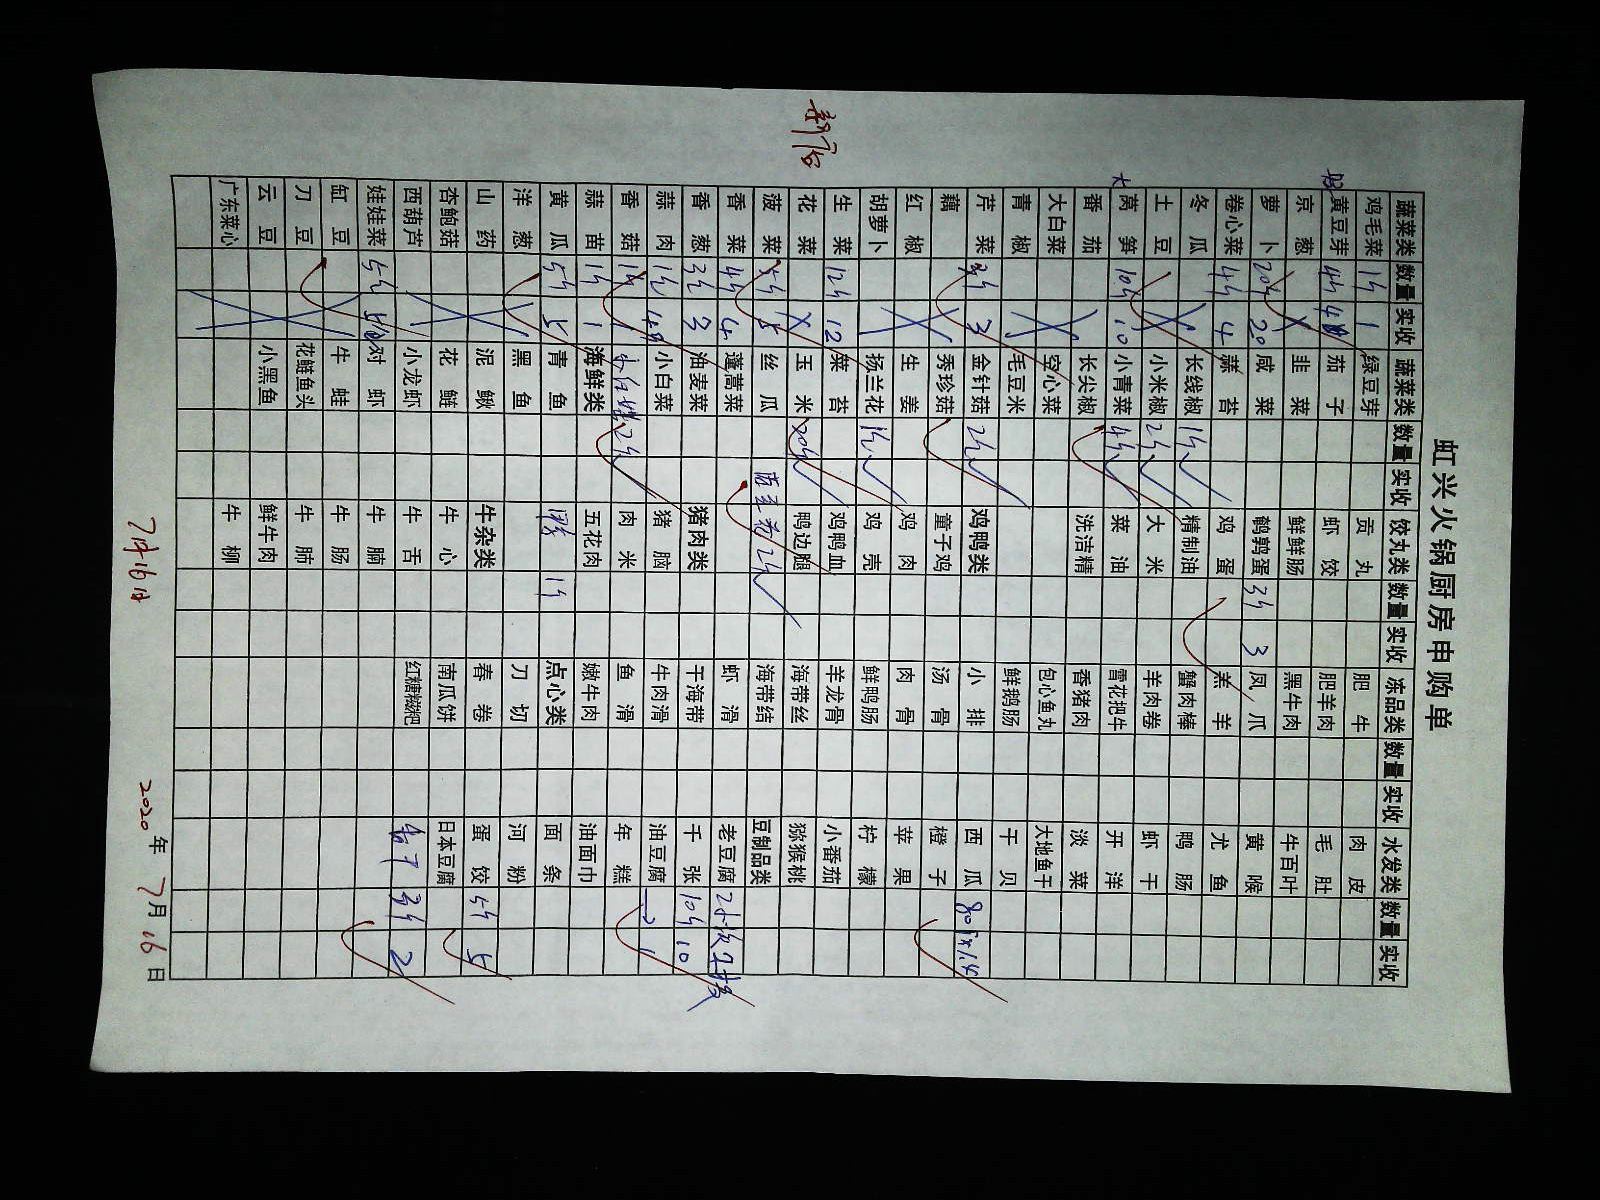 虹兴火锅厨房申购单
新店
蔬菜类 数量 实收 蔬菜类 数量 实收 饺丸类 数量 实收 冻品类 数量 实收 水发类 数量 实收
鸡毛菜 1斤 1 绿豆芽 贡丸 肥牛 肉皮
黄豆芽 4斤 4 茄子 虾饺 肥羊肉 毛肚
京葱 韭菜 鲜鲜肠 黑牛肉 牛百叶
萝卜 20斤 20 咸菜 鹌鹑蛋 3斤 3 凤爪 黄喉
卷心菜 4斤 4 蒜苔 鸡蛋 羔羊 尤鱼
冬瓜 长线椒 1斤 精制油 蟹肉棒 鸭肠
土豆 小米椒 2斤 大米 羊肉卷 虾干
大 莴笋 10斤 10 小青菜 4斤 菜油 雪花把牛 开洋
番茄 长尖椒 洗洁精 香猪肉 淡菜
大白菜 空心菜 包心鱼丸 大地鱼干
青椒 毛豆米 鲜鹅肠 干贝
芹菜 3斤 3 金针菇 2斤 鸡鸭类 小排 西瓜
藕 秀珍菇 童子鸡 汤骨 橙子
红椒 生姜 鸡肉 肉骨 苹果
胡萝卜 扬兰花 1斤 鸡壳 鲜鸭肠 柠檬
生菜 12斤 12 菜苔 鸡鸭血 羊龙骨 小番茄
花菜 玉米 20斤 鸭边腿 海带丝 猕猴桃
菠菜 5斤 5 丝瓜 海带结 豆制品类
香菜 4斤 4 蓬蒿菜 虾滑 老豆腐
香葱 3斤 3 油麦菜 猪肉类 干海带 千张 10斤 10
蒜肉 1斤 小白菜 猪脑 牛肉滑 油豆腐 1
香菇 1斤 1 2斤 肉米 鱼滑 年糕
蒜苗 1斤 1 海鲜类 五花肉 嫩牛肉 油面巾
黄瓜 5斤 5 青鱼 1斤 点心类 面条
洋葱 黑鱼 刀切 河粉
山药 泥鳅 牛杂类 春卷 蛋饺 5斤 5
杏鲍菇 花鲢 牛心 南瓜饼 日本豆腐
西葫芦 小龙虾 牛舌 红糖糍粑 3斤 2
娃娃菜 5斤 对虾 牛腩
缸豆 牛蛙 牛肠
刀豆 花鲢鱼头 牛肺
云豆 小黑鱼 鲜牛肉
广东菜心 牛柳
7月16日
2020年7月16日